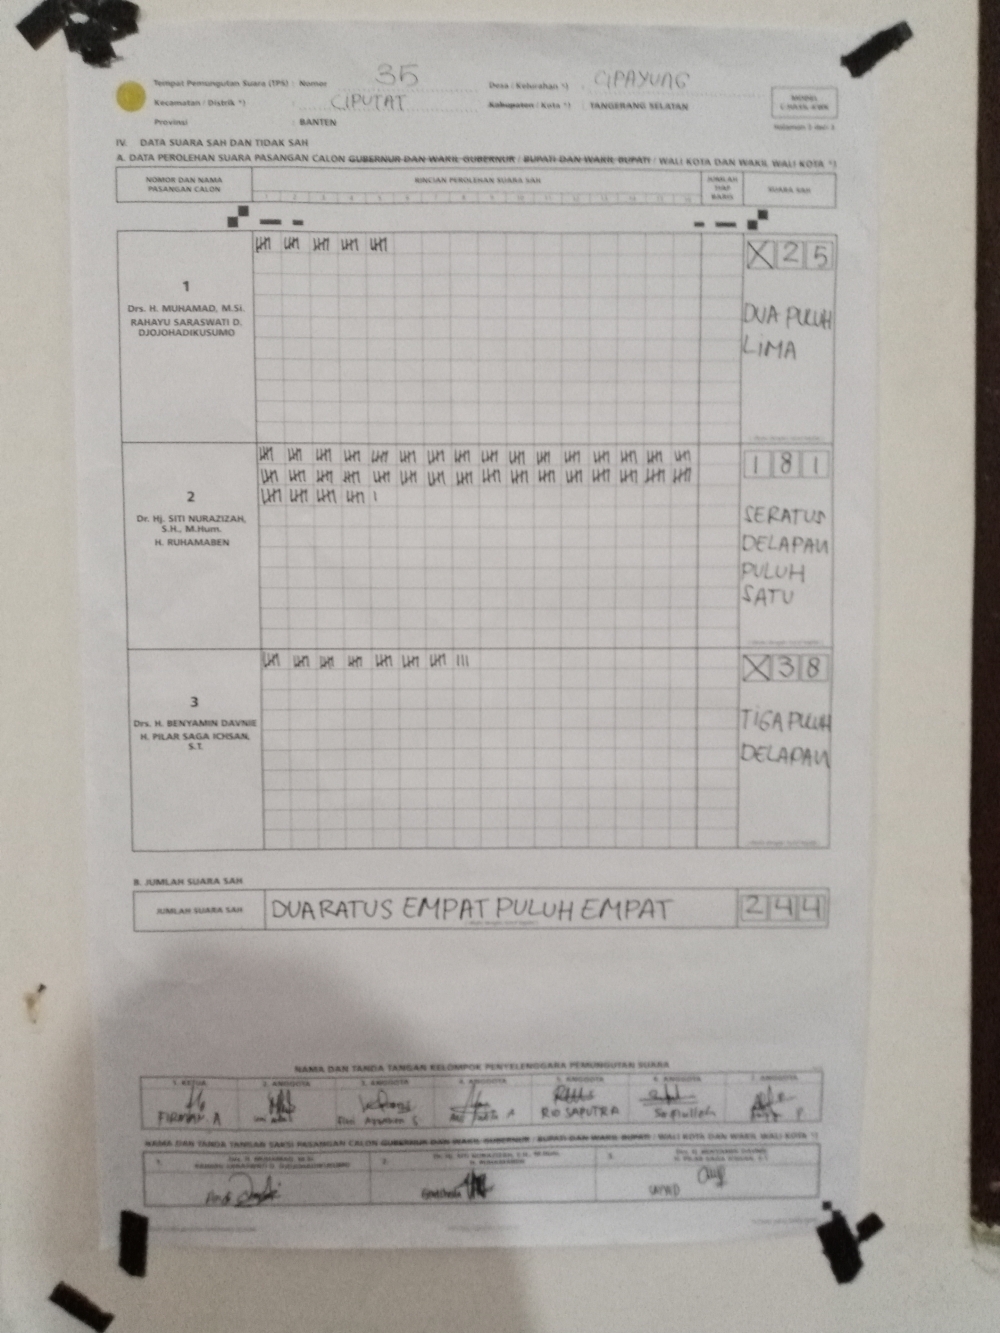 Tempat Pemungutan Suara (TPS) : Nomor 35 Desa / Kelurahan *) : CIPAYUNG
Kecamatan / Distrik *) : CIPUTAT Kabupaten / Kota *) : TANGERANG SELATAN
Provinsi : BANTEN
MODEL
IV. DATA SUARA SAH DAN TIDAK SAH
A. DATA PEROLEHAN SUARA PASANGAN CALON GUBERNUR DAN WAKIL GUBERNUR / BUPATI DAN WAKIL BUPATI / WALI KOTA DAN WAKIL WALI KOTA *)
NOMOR DAN NAMA PASANGAN CALON
RINCIAN PEROLEHAN SUARA SAH
JUMLAH TIAP BARIS
SUARA SAH
1
Drs. H. MUHAMAD, M.Si.
RAHAYU SARASWATI D.
DJOJOHADIKUSUMO
X 2 5
DUA PULUH
LIMA
2
Dr. Hj. SITI NURAZIZAH,
S.H., M.Hum.
H. RUHAMABEN
1 8 1
SERATUS
DELAPAN
PULUH
SATU
3
Drs. H. BENYAMIN DAVNIE
H. PILAR SAGA ICHSAN,
S.T.
X 3 8
TIGA PULUH
DELAPAN
B. JUMLAH SUARA SAH
JUMLAH SUARA SAH DUA RATUS EMPAT PULUH EMPAT 2 4 4
NAMA DAN TANDA TANGAN KELOMPOK PENYELENGGARA PEMUNGUTAN SUARA
1. KETUA 2. ANGGOTA 3. ANGGOTA 4. ANGGOTA 5. ANGGOTA 6. ANGGOTA 7. ANGGOTA
FIRMAN. A RIO SAPUTRA Saefulloh
NAMA DAN TANDA TANGAN SAKSI PASANGAN CALON GUBERNUR DAN WAKIL GUBERNUR / BUPATI DAN WAKIL BUPATI / WALI KOTA DAN WAKIL WALI KOTA *)
1. 2. 3.